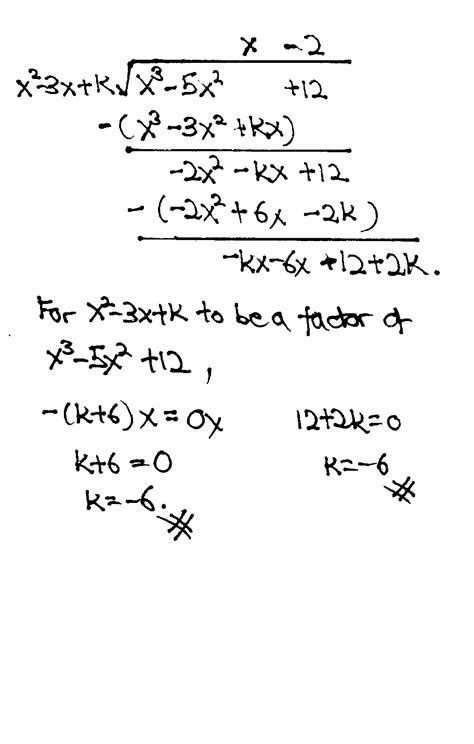 x -2
x²-3x+k√x³-5x² +12
-(x³-3x²+kx)
-2x²-kx+12
-(-2x²+6x-2k)
-kx-6x+12+2k.
For x²-3x+k to be a factor of
x³-5x²+12,
-(k+6)x=0x 12+2k=0
k+6=0 k=-6
k=-6.